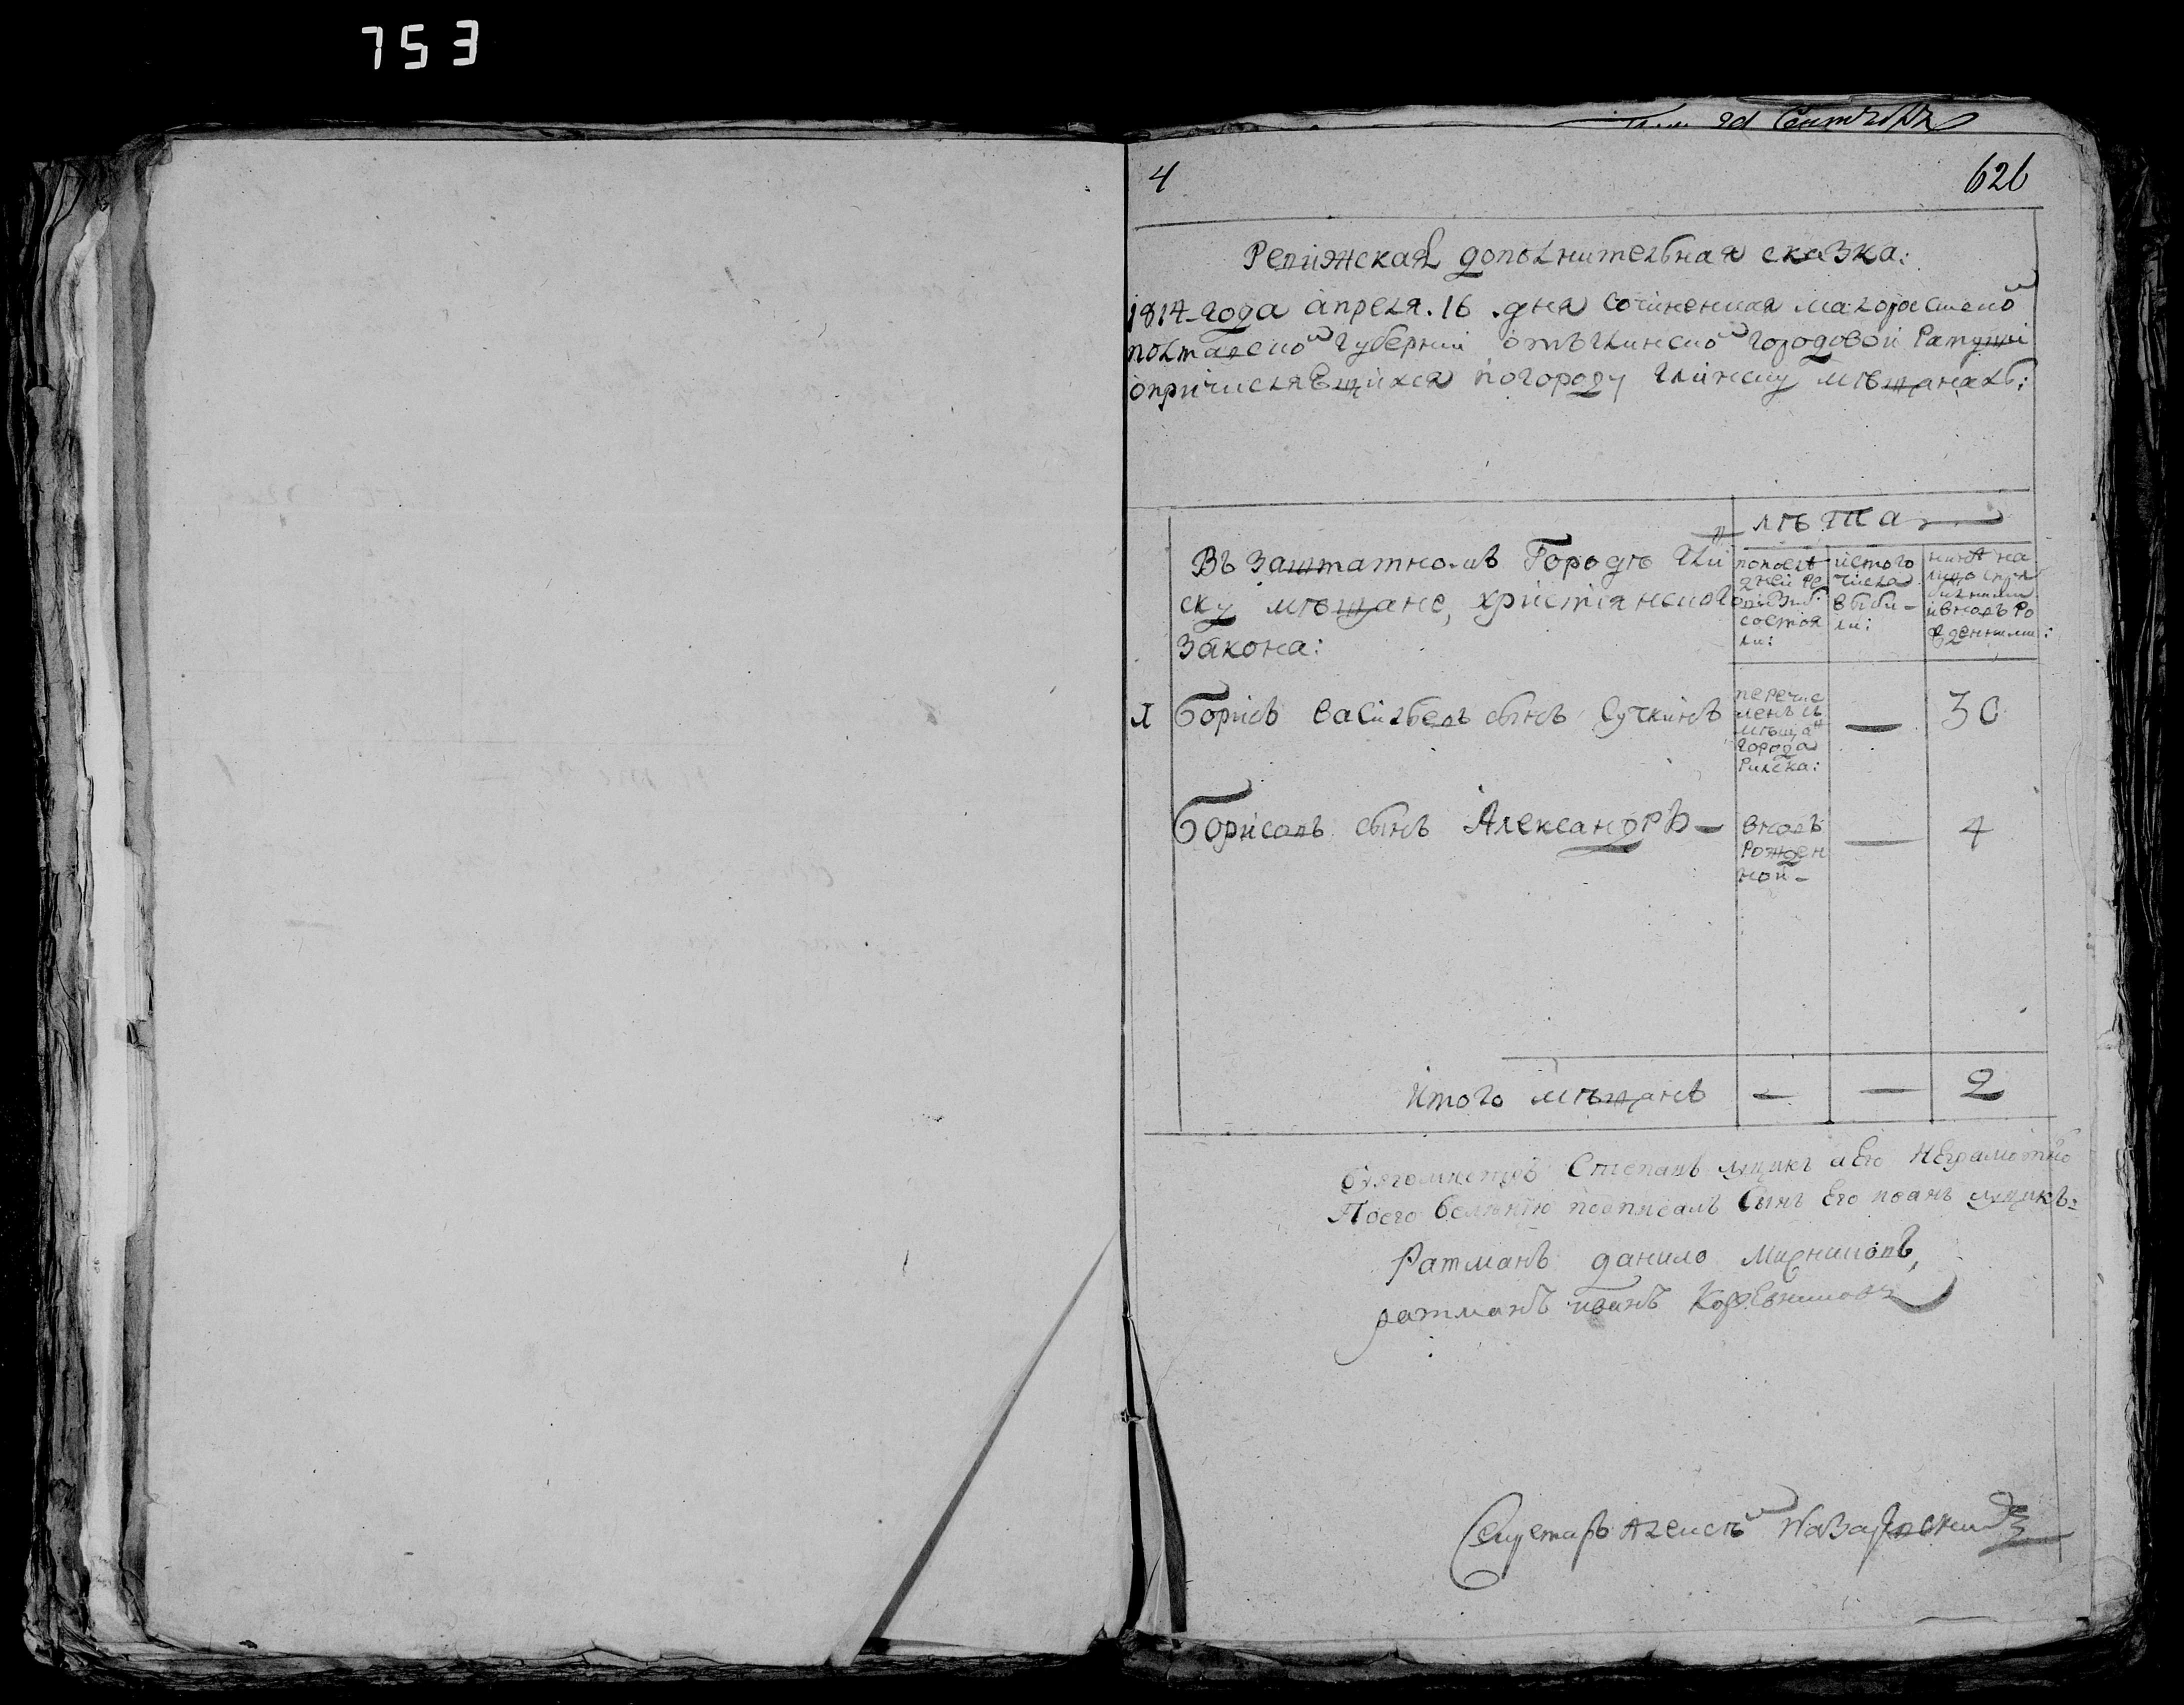 753
Сентября
4
626
Ревижская дополнительная сказка:
1814 года апреля. 16 дня сочиненная малороссиской
полтавской губернии отъ глинской городовой Ратуши
опричислявшихся погороду глинску мѣщанахъ:
лѣта
Въ Заштатномъ Городѣ Глин
ску мѣщане, христіянского
Закона:
попослѣ
дней Ре
визіи
состоя
ли:
истого
числа
выбы-
ли:
нынѣ на
лицо спри
былыми
ивновь Ро
жденными:
1
Борисъ васильевъ сынъ Сучкинъ
перечис
ленъ съ
мѣщан
города
Рилска:
—
30
Борисовъ сынъ Александръ —
вновь
Рожден
ной —
—
4
Итого мѣщанъ
—
—
2
Степанъ лущикъ аЕго НЕграмотно
Поего велѣнію подписалъ Сынъ Его иванъ лущикъ
Ратманъ данило
ратманъ иванъ
Секретарь Алексѣй